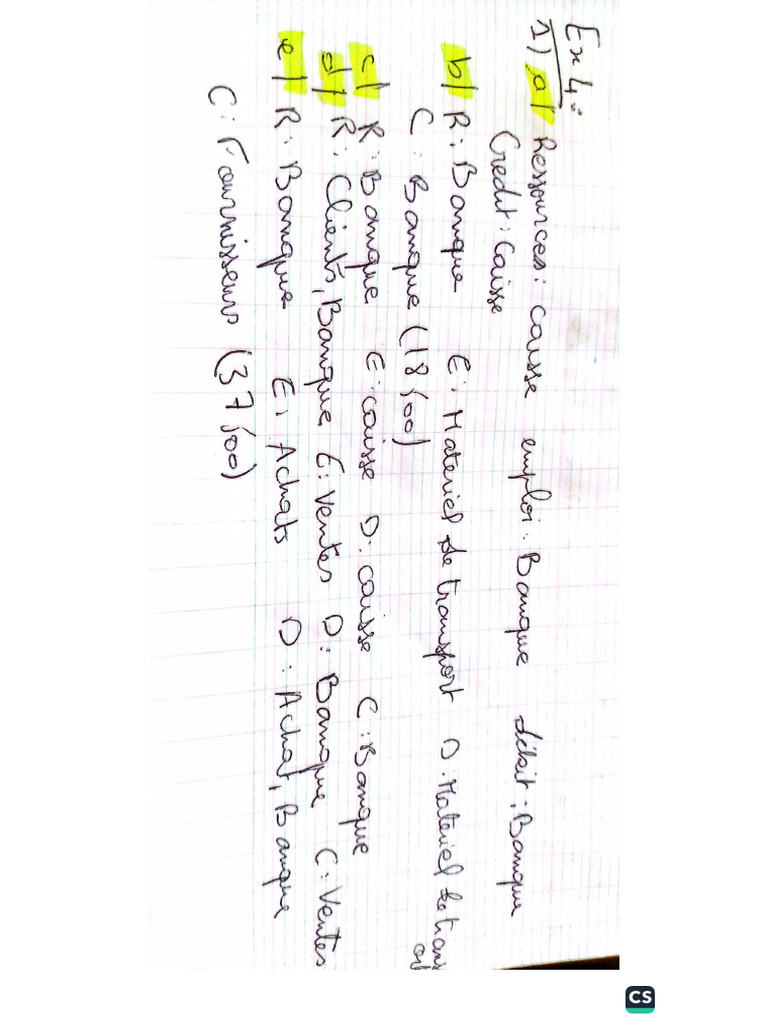 Ex 4:
1) a/ Ressources: caisse emploi: Banque débit: Banque
Credit: Caisse
b/ R: Banque E: Materiel de transport D: Materiel de trans
C: Banque (18 500)
c/ R: Banque E: caisse D: caisse C: Banque
d/ R: Clients, Banque E: Ventes D: Banque C: Ventes
e/ R: Banque E: Achats D: Achat, Banque
C: Fournisseurs (37 500)
CS